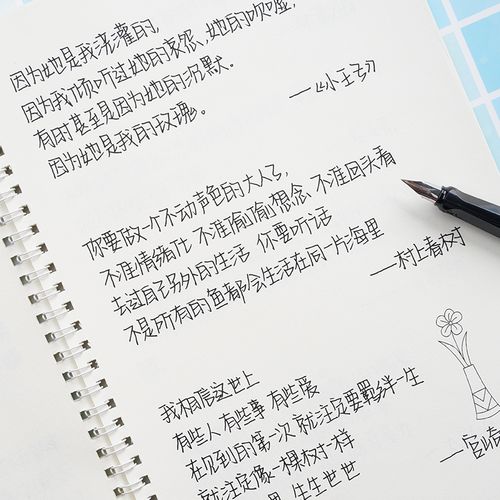 因为她是我浇灌的,
因为我倾听过她的哀怨、她的吹嘘,
有时甚至是因为她的沉默。
因为她是我的玫瑰。
——《小王子》
你要做一个不动声色的大人了,
不准情绪化 不准偷偷想念 不准回头看
去过自己另外的生活 你要听话
不是所有的鱼都会生活在同一片海里
——村上春树
我相信这世上
有些人有些事 有些爱
在见到的第一次 就注定要羁绊一生
就注定像一棵树一样
生生世世
——宫崎